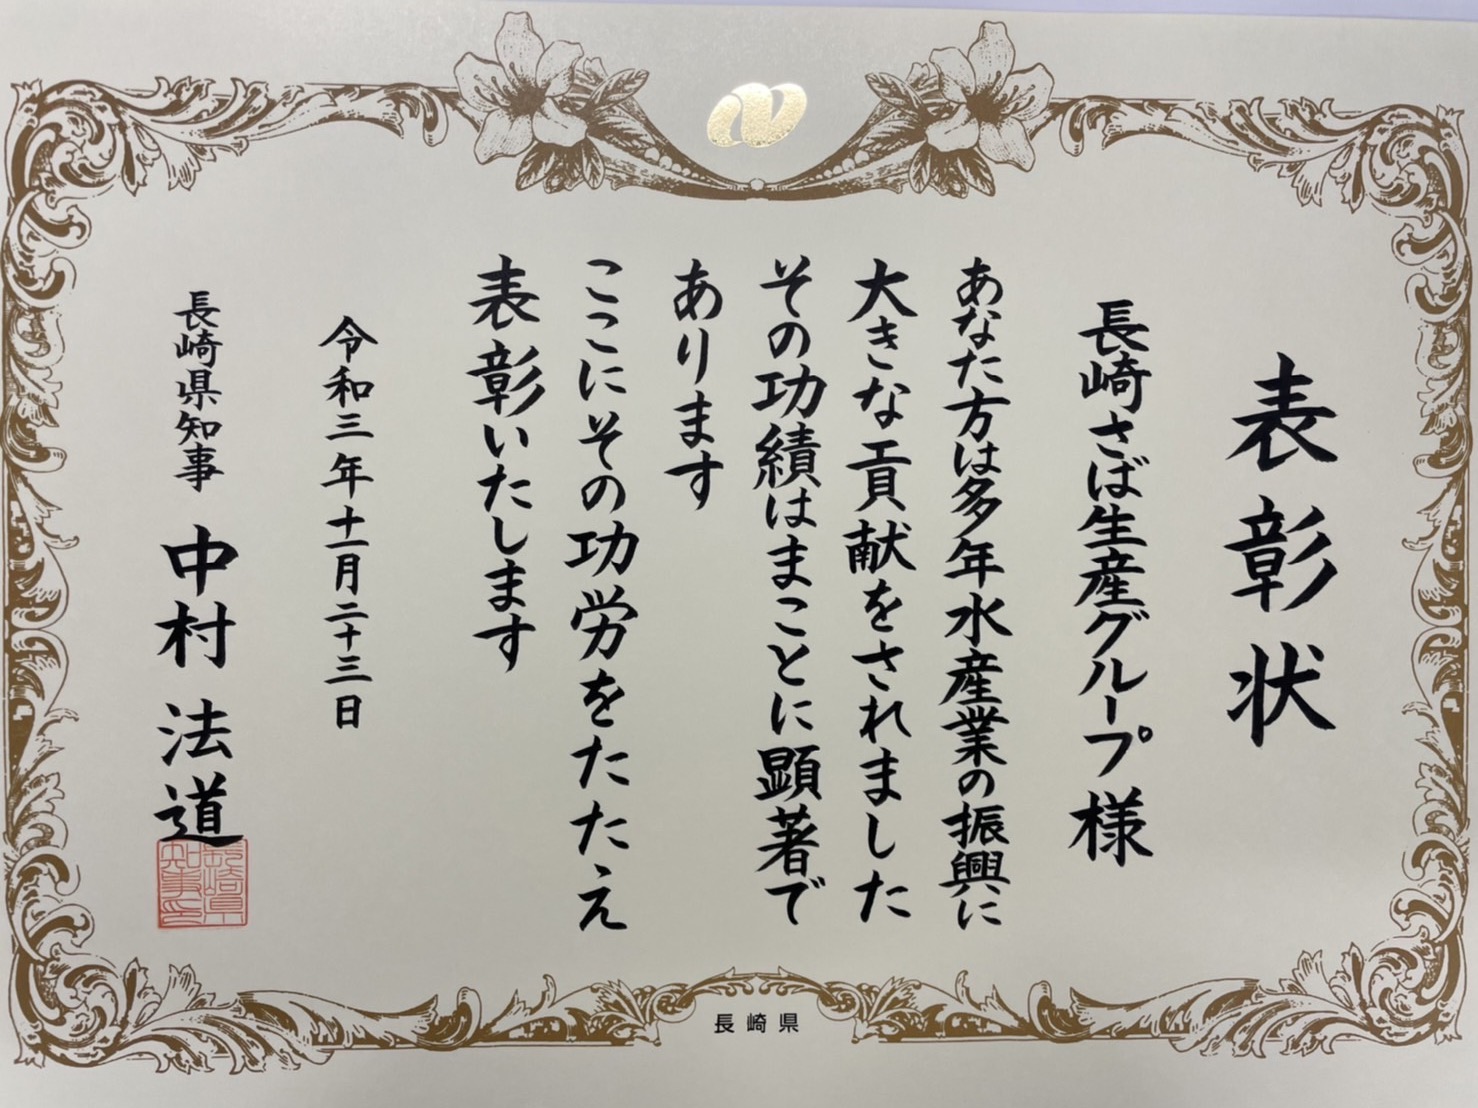 表彰状
長崎さば生産グループ様
あなた方は多年水産業の振興に
大きな貢献をされました
その功績はまことに顕著で
あります
ここにその功労をたたえ
表彰いたします
令和三年十一月二十三日
長崎県知事 中村法道
長崎県知事之印
長崎県